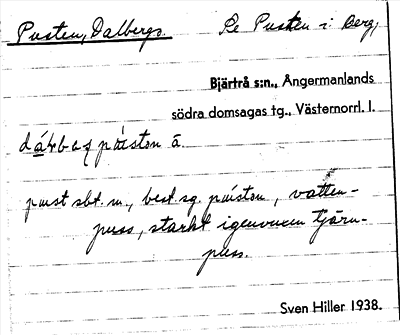 Pusten, Dalbergs. Se Pusten i Berg,
Bjärtrå s:n., Ångermanlands
södra domsagas tg., Västernorrl. l.
pust sbt. m., best. sg. púiston, vatten-
puss, starkt igenvuxen tjärn-
puss.
Sven Hiller 1938.